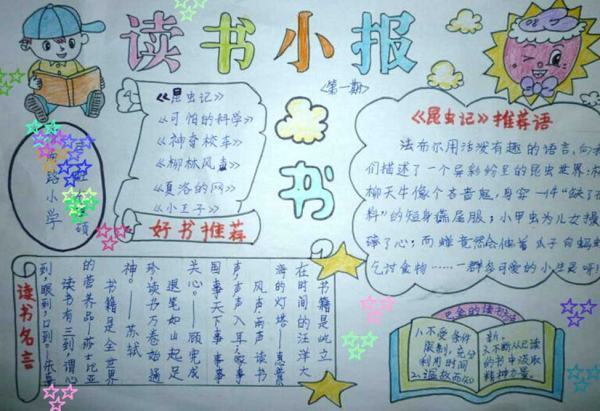 读书小报
<第一期>
《昆虫记》
《可怕的科学》
《神奇校车》
《柳林风声》
《夏洛的网》
《小王子》
好书推荐
书
路小学
《昆虫记》推荐语
法布尔用活泼有趣的语言,向我
们描述了一个异彩纷呈的昆虫世界:
柳天牛像个吝啬鬼,身穿一件“缺了
料”的短身燕尾服;小甲虫为儿女操
碎了心;而蝉竟然会伸着
乞讨食物……一群多可爱的小生灵呀!
读书名言
书籍是屹立
在时间的汪洋大
海的灯塔——
风声雨声读书
声声声入耳家事
国事天下事事事
关心。——顾宪成
退笔如山起足
珍,读书万卷始通
神。——苏轼
书籍是全世界
的营养品——莎士比亚
读书有三到,谓心
到,眼到,口到——朱熹
的读书方法
1.不受条件
限制,充分
利用时间
2.温故而知
新。
3.不断从已读
的书中汲取
精神力量。